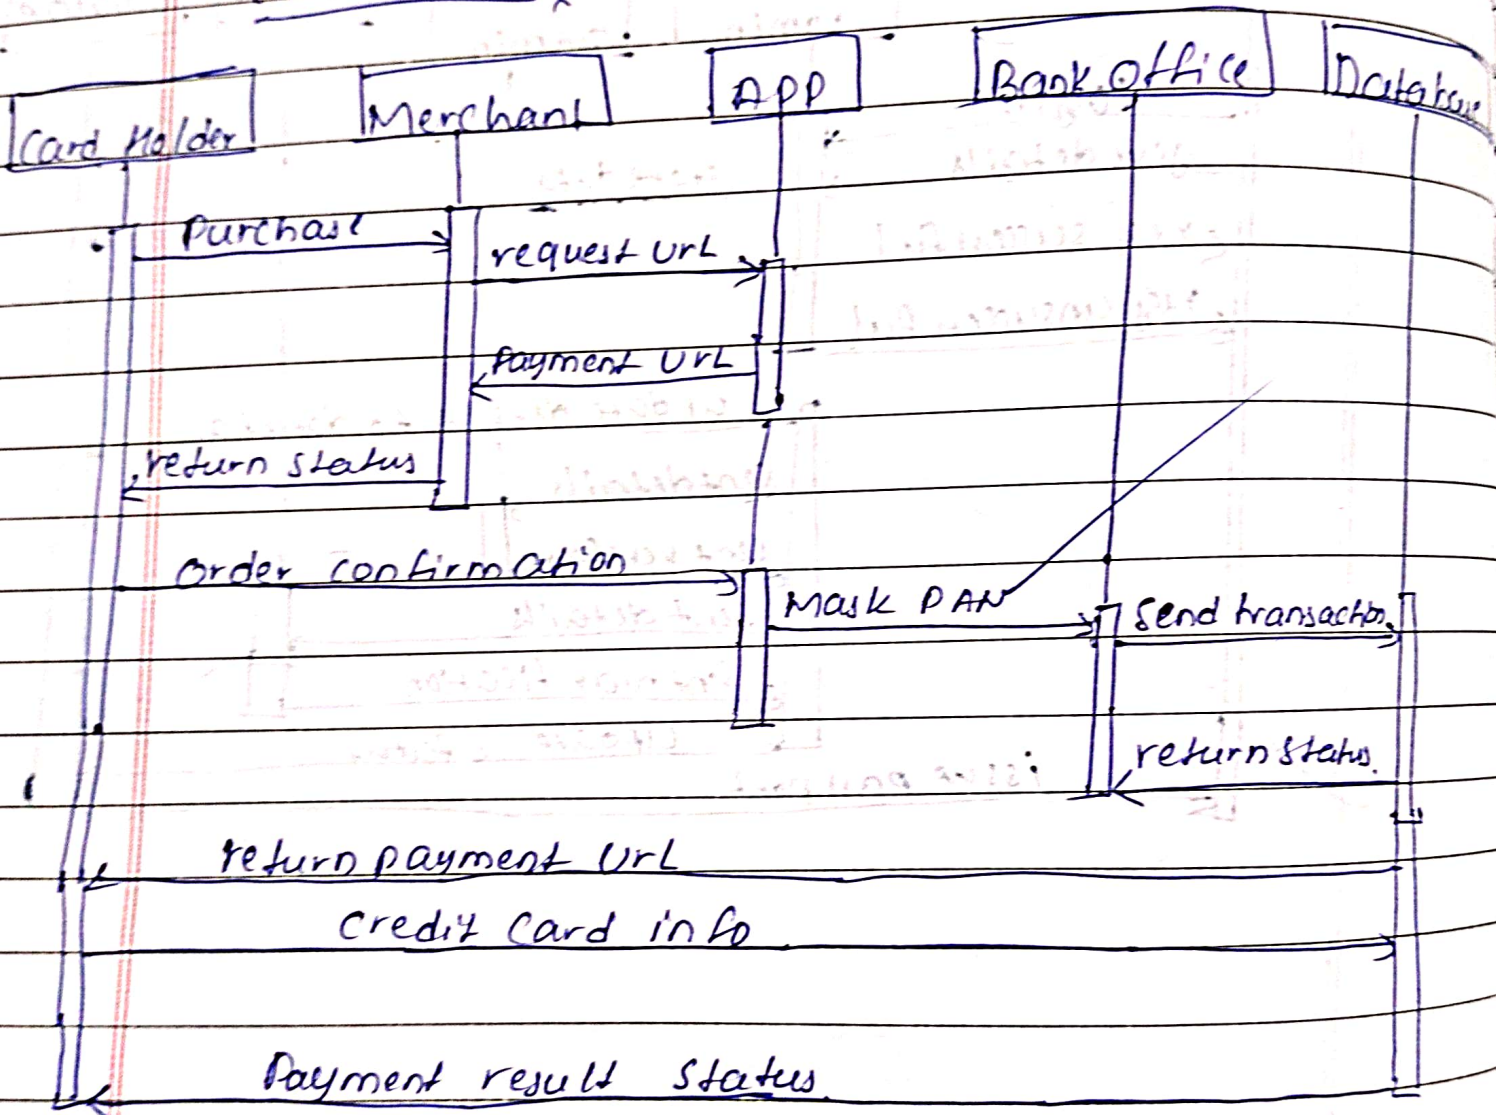 Card Holder
Merchant
APP
Bank Office
Database
Purchase
request UrL
Payment UrL
return status
order confirmation
Mask PAN
Send transaction
return status.
return payment UrL
Credit Card info
Payment result status